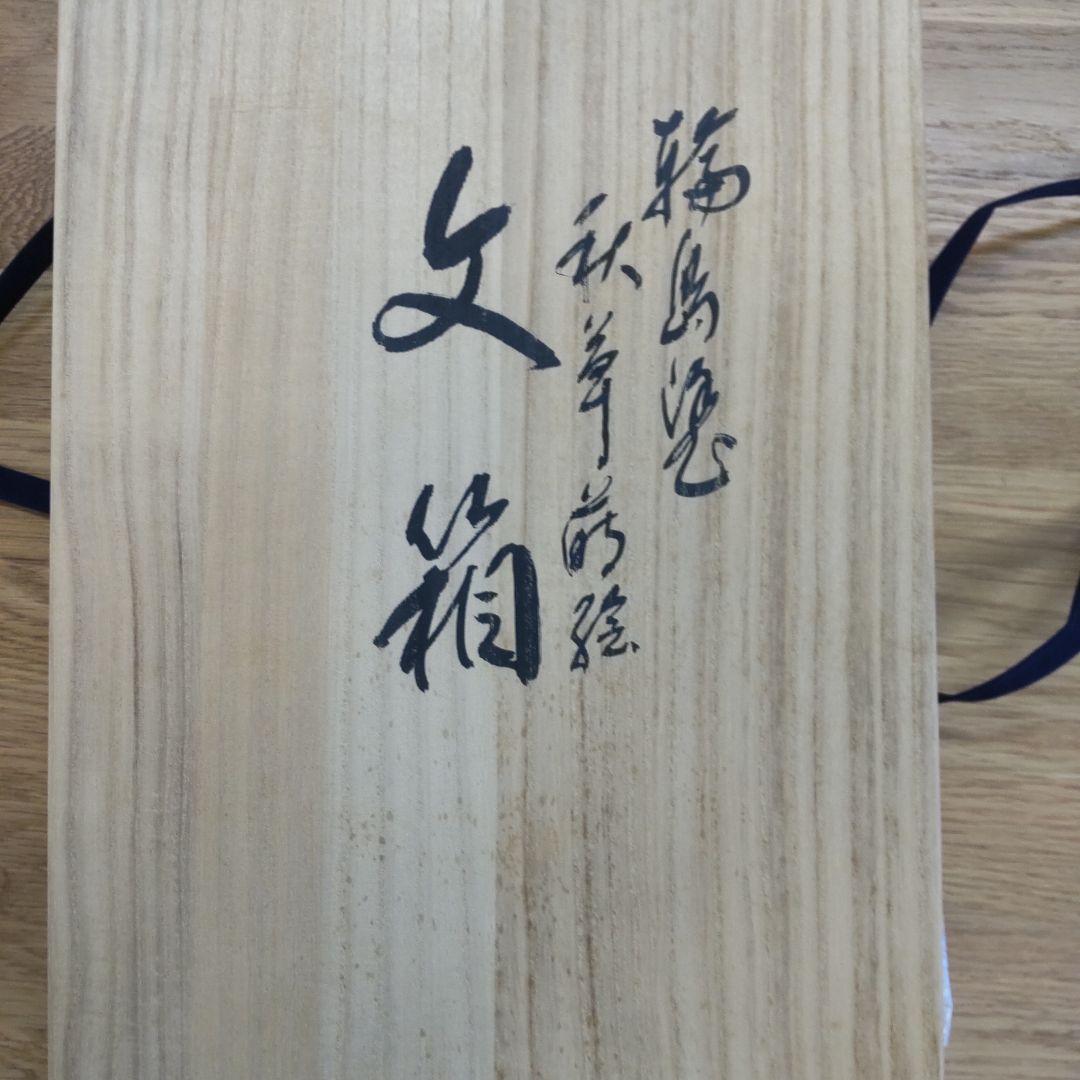 輪島塗
秋草蒔絵
文箱